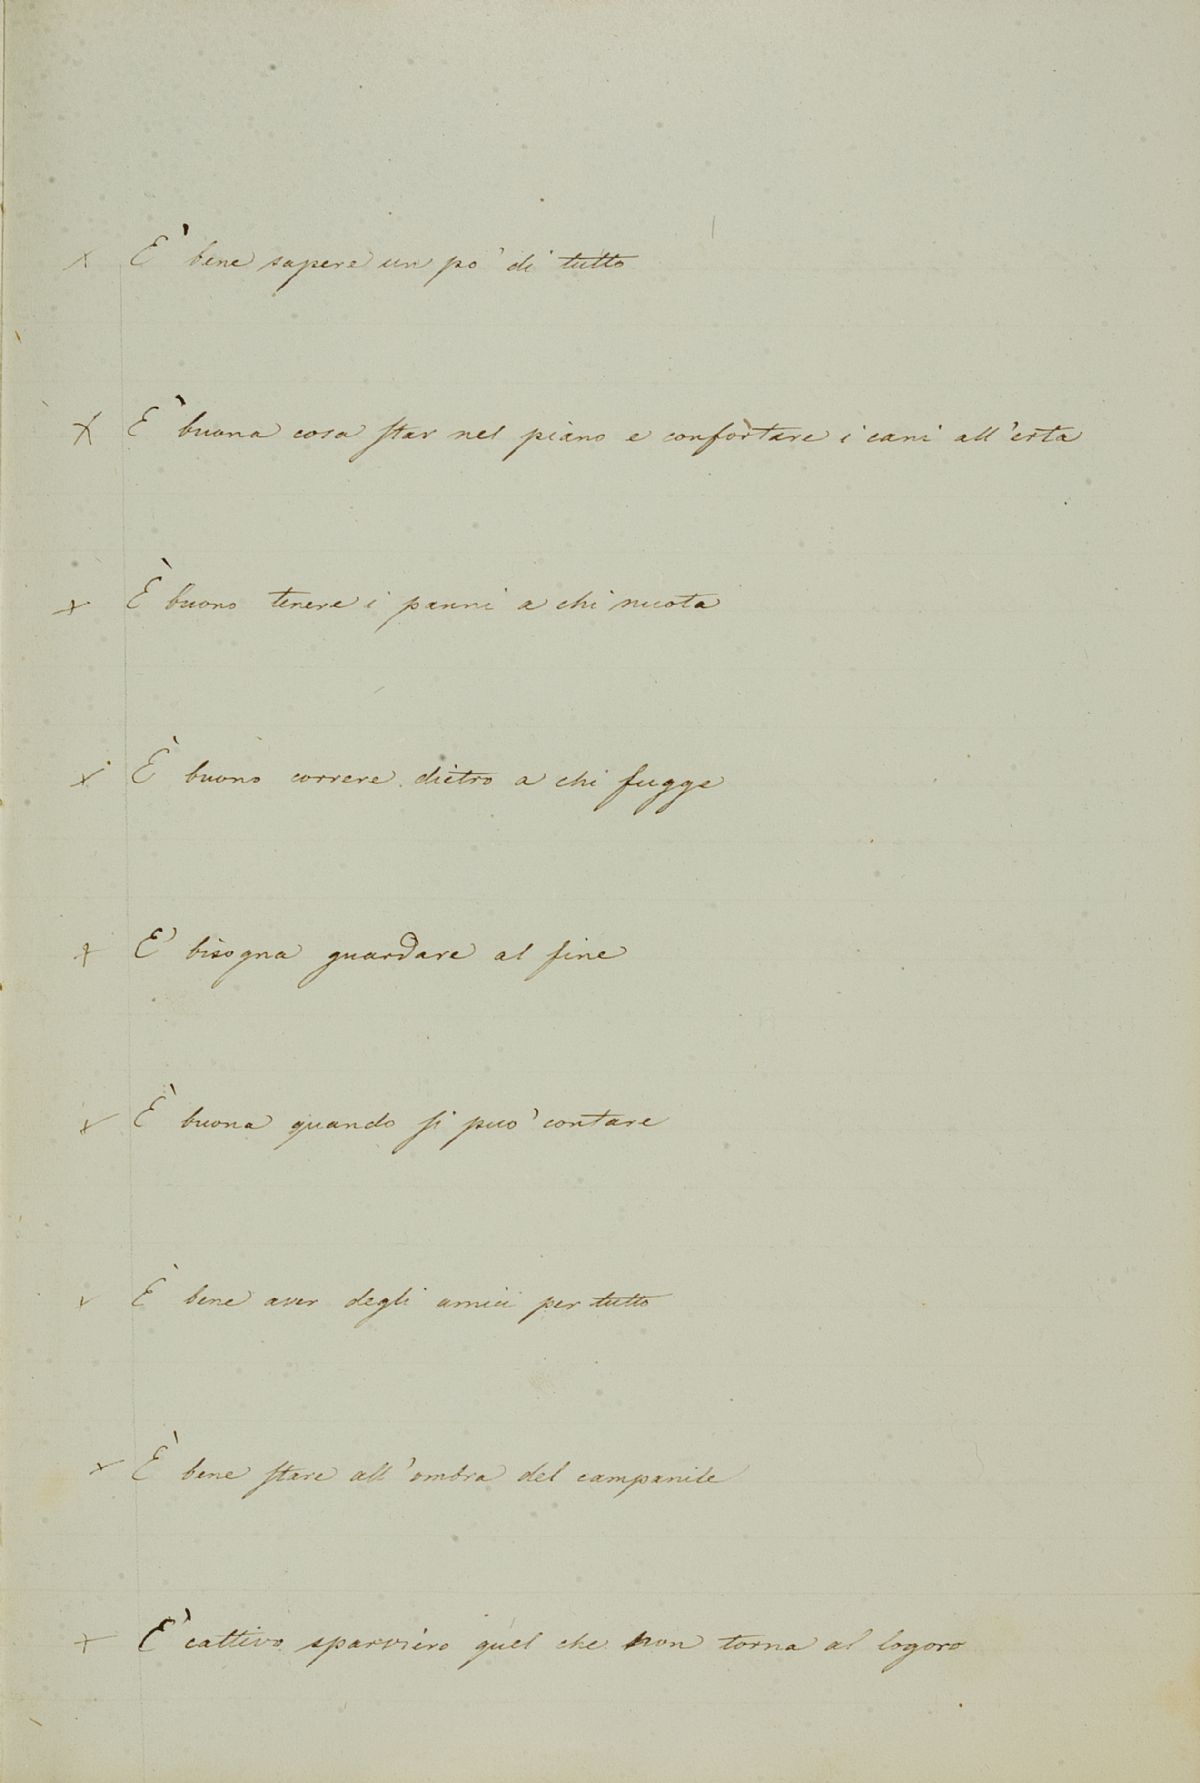 x È bene sapere un po' di tutto
x È buona cosa star nel piano e confortare i cani all'erta
x È buono tenere i panni a chi nuota
x È buono correre dietro a chi fugge
x E' bisogna guardare al fine
x È buona quando si può contare
x È bene aver degli amici per tutto
x È bene stare all'ombra del campanile
x È cattivo sparviero quel che non torna al logoro